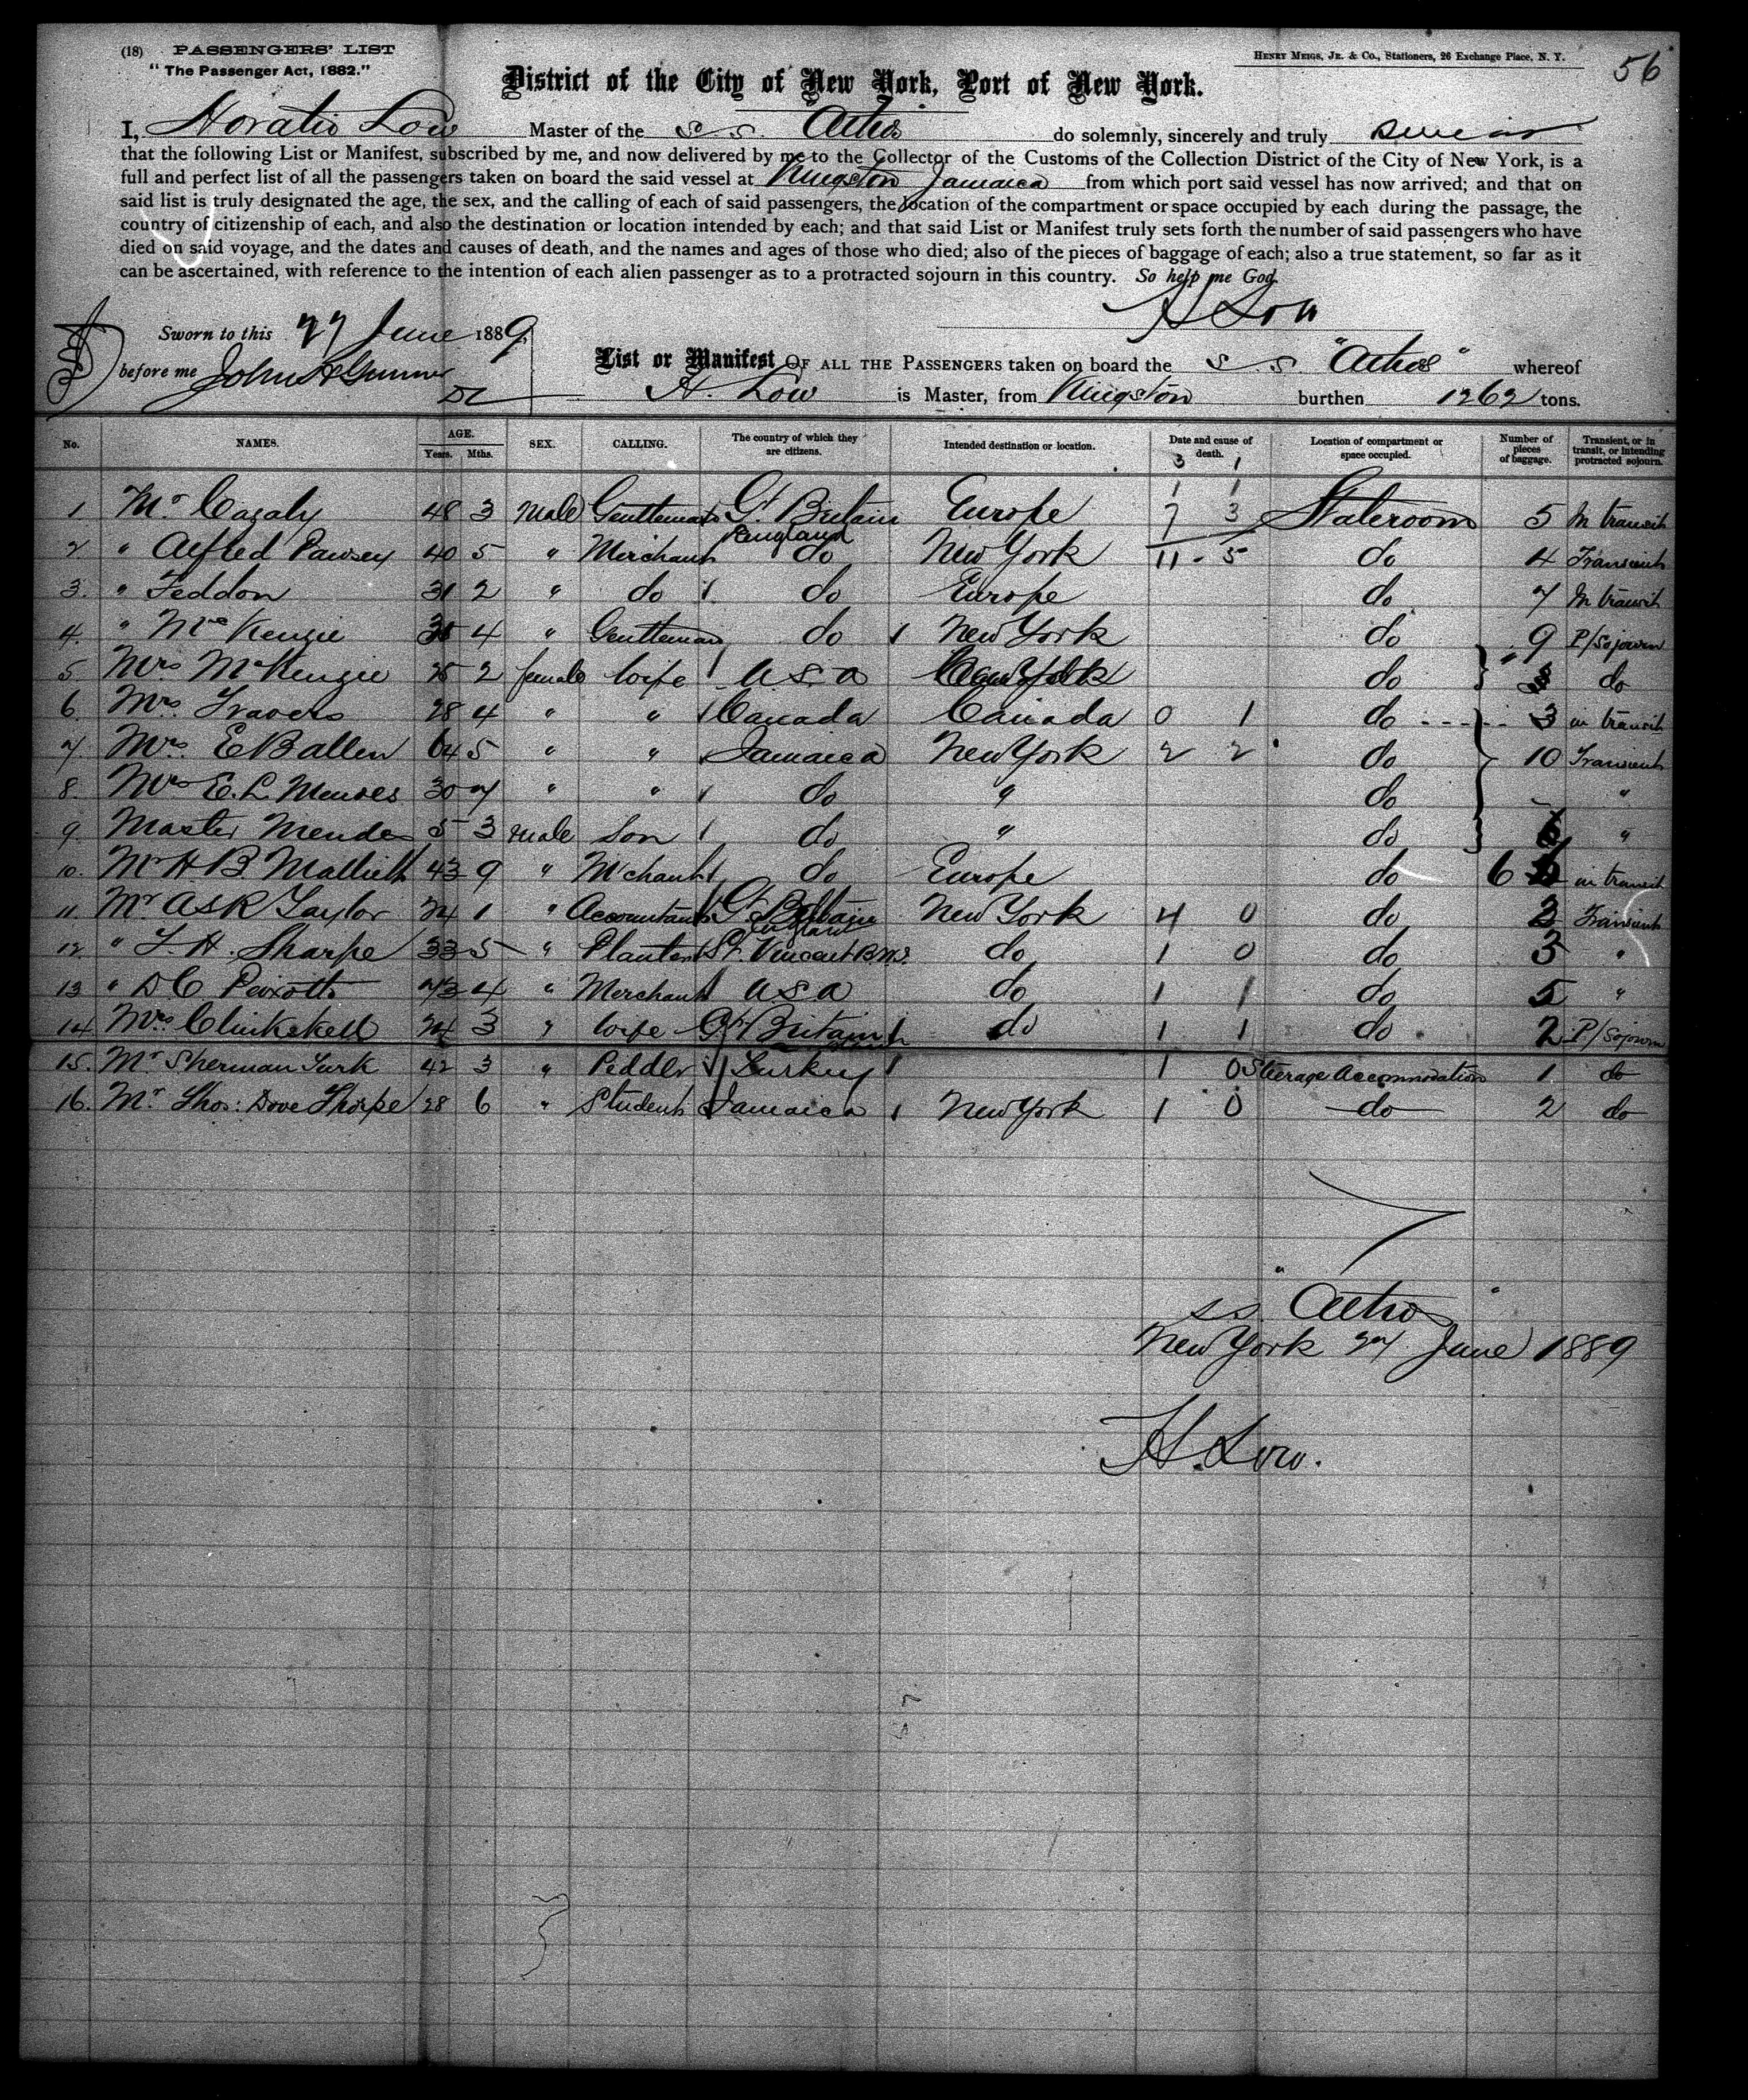 (18) PASSENGERS' LIST
"The Passenger Act, 1882."
HENRY MEIGS, JR. & CO., Stationers, 26 Exchange Place, N. Y.
56
District of the City of New York, Port of New York.
I, Horatio Low Master of the S. S. Athos do solemnly, sincerely and truly swear
that the following List or Manifest, subscribed by me, and now delivered by me to the Collector of the Customs of the Collection District of the City of New York, is a
full and perfect list of all the passengers taken on board the said vessel at Kingston Jamaica from which port said vessel has now arrived; and that on
said list is truly designated the age, the sex, and the calling of each of said passengers, the location of the compartment or space occupied by each during the passage, the
country of citizenship of each, and also the destination or location intended by each; and that said List or Manifest truly sets forth the number of said passengers who have
died on said voyage, and the dates and causes of death, and the names and ages of those who died; also of the pieces of baggage of each; also a true statement, so far as it
can be ascertained, with reference to the intention of each alien passenger as to a protracted sojourn in this country. So help me God.
H Low
Sworn to this 27 June 1889
before me John
List or Manifest OF ALL THE PASSENGERS taken on board the S S "Athos" whereof
H. Low is Master, from Kingston burthen 1262 tons.
No. NAMES. AGE. Years. Mths. SEX. CALLING. The country of which they are citizens. Intended destination or location. Date and cause of death. Location of compartment or space occupied. Number of pieces of baggage. Transient, or in transit, or intending protracted sojourn.
3 1
1 1
1. Mr Cazaly 48 3 Male Gentleman Gt Britain Europe 7 3 Stateroom 5 In transit
England
2 " Alfred Pawsey 40 5 " Merchant do New York 11 - 5 do 4 Transient
3. " Feddon 31 2 " do do Europe do 7 In transit
4. " McKenzie 4 " Gentleman do New York do 9 P/Sojourn
5 Mrs McKenzie 25 2 female Wife U S A New York do do
6. Mrs. Travers 28 4 " " Canada Canada 0 1 do 3 in transit
7. Mrs E Ballen 64 5 " " Jamaica New York 2 2 do 10 Transient
8. Mrs E. L. 30 7 " " do " do "
9. Master Mendes 5 3 Male Son do " do "
10. Mr H B 43 9 " M'chant do Europe do 6 in transit
11. Mr A S R Taylor 24 1 " Accountant Gt Britain New York 4 0 do 2 Transient
England
12. " T. H. Sharpe 33 5 " Planter St. Vincent B.W.I. do 1 0 do 3 "
13 " D C Peixotto 43 4 " Merchant U S A do 1 1 do 5 "
14. Mrs 24 3 " Wife Gt Britain do 1 1 do 2 P/Sojourn
15. Mr Sherman Turk 42 3 " Peddler Turkey 1 0 Steerage Accommodation 1 do
16. Mr Thos: Dove Thorpe 28 6 " Student Jamaica New York 1 0 do 2 do
SS. "Athos"
New York 27 June 1889
H. Low.